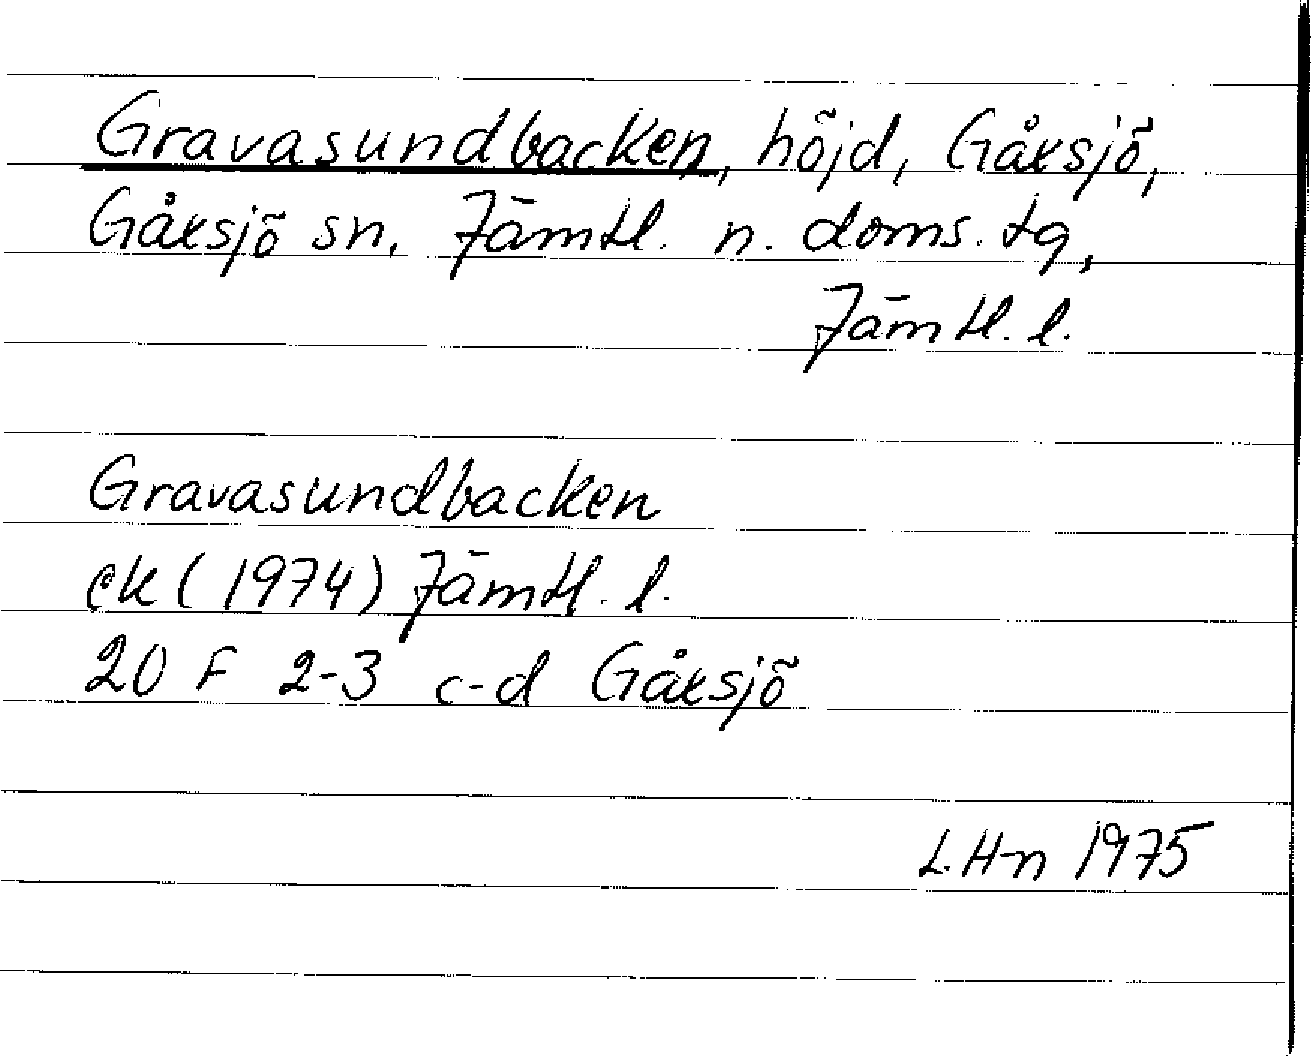 Gravasundbacken, höjd, Gåxsjö,
Gåxsjö sn, Jämtl. n. doms. tg,
Jämtl. l.
Gravasundbacken
ek (1974) Jämtl. l.
20 F 2-3 c-d Gåxsjö
L.H-n 1975